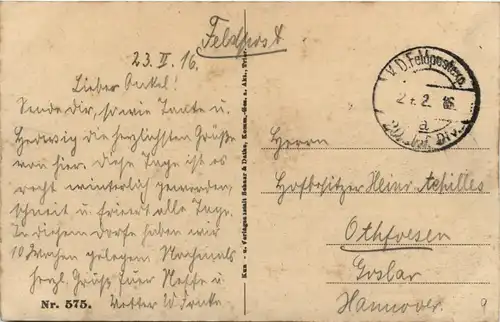 Feldpost
23. II. 16.
Lieber Onkel!
Sende dir, sowie Tante u.
Hedwig die herzlichsten Grüße
von hier. Diese Tage ist es
recht winterlich geworden,
schneit u. friert alle Tage.
In diesem Dorfe haben wir
10 Wochen gelegen. Nochmals
herzl. Gruß Euer Neffe u.
Vetter W.
Nr. 575.
Kun - u. Verlagsanstalt Schaar & Dathe, Komm.-Ges. a. Akt., Trier.
K. D. Feldpostexp.
2 .2. 16
a
Div.
Herrn
Hofbesitzer Heinr. Achilles
Othfresen
Goslar
Hannover.